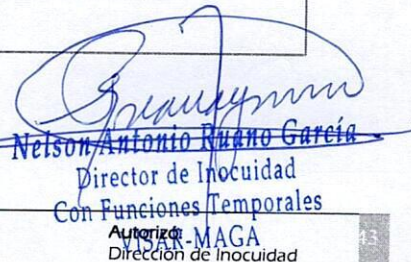 Nelson Antonio Ruano García
Director de Inocuidad
Con Funciones Temporales
VISAR-MAGA
Autorizó:
Dirección de Inocuidad
43